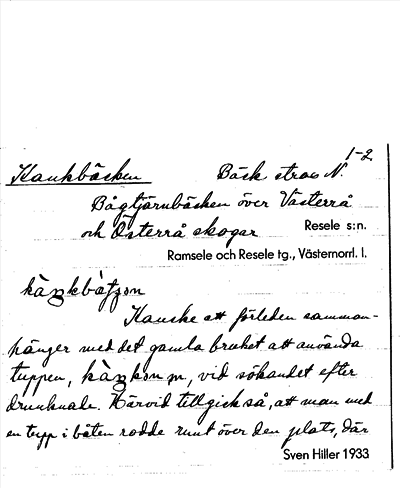 1-2
Kankbäcken Bäck strax N.
Bågtjärnbäcken över Västerrå
och Österrå skogar Resele s:n.
Ramsele och Resele tg., Västernorrl. l.
Kanske att förleden samman-
hänger med det gamla bruket att använda
tuppen, vid sökandet efter
drunknade. Härvid tillgick så, att man med
en tupp i båten rodde runt över den plats, där
Sven Hiller 1933